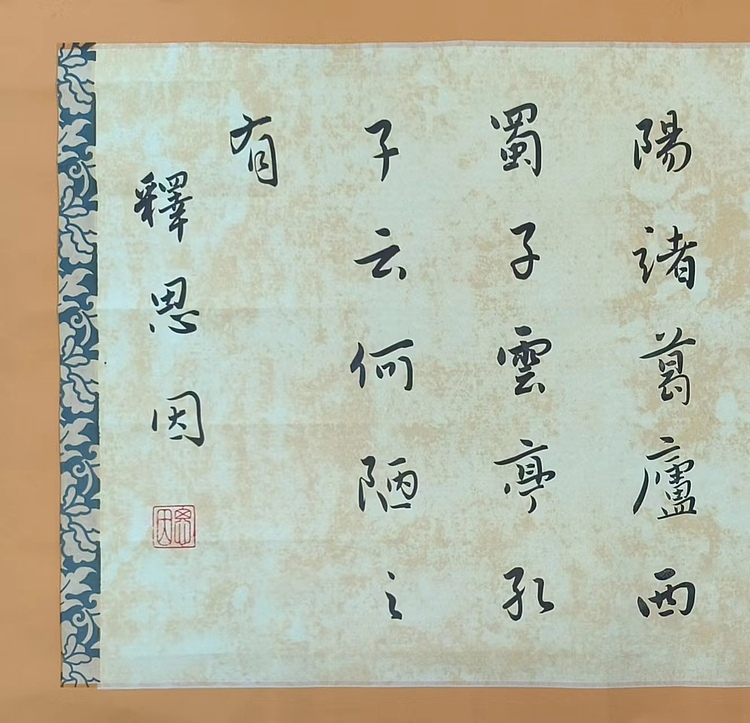 陽諸葛廬西
蜀子雲亭孔
子云何陋之
有
釋思因
思因